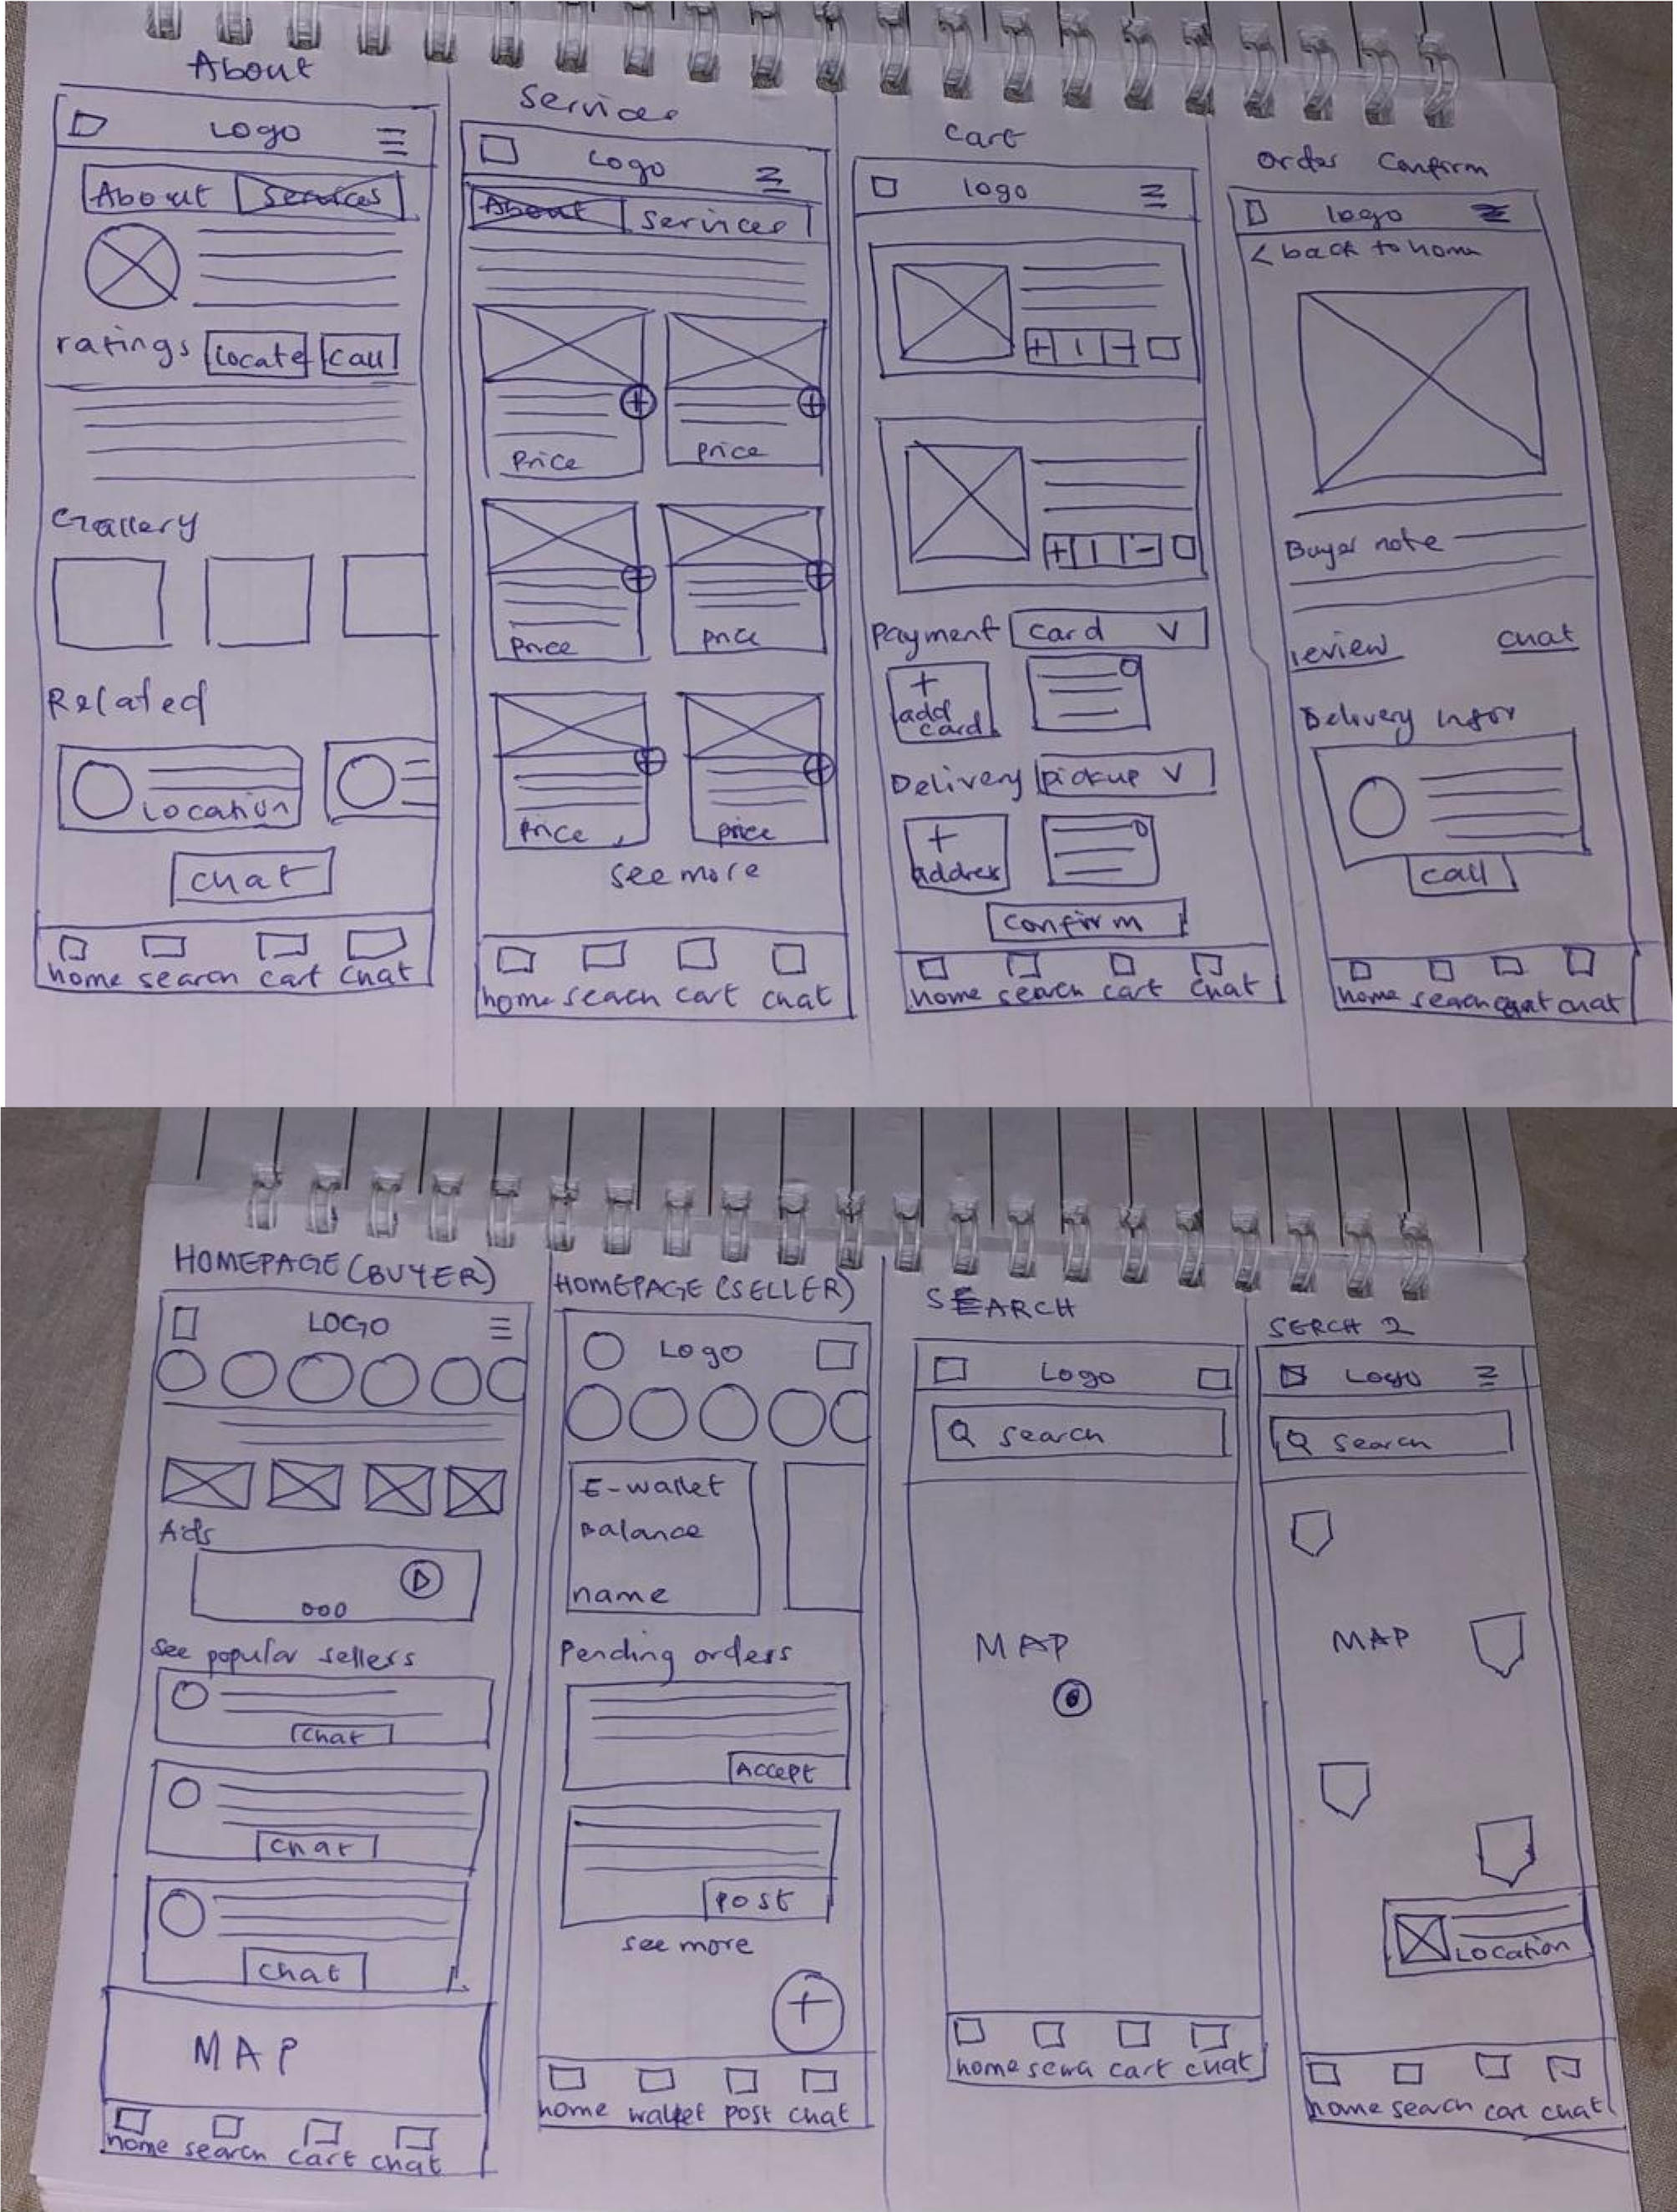 About
Logo
About Services
ratings Locate Call
Gallery
Related
Location
chat
home search cart chat
Services
Logo
About Services
Price Price
Price price
Price price
see more
home search cart chat
Cart
logo
+ 1 -
+ 1 -
Payment card V
+ add card
Delivery pickup V
+ address
confirm
home search cart chat
Order Confirm
logo
< back to home
Buyer note
review chat
Delivery infor
call
home search chat
HOMEPAGE (BUYER)
LOGO
Ads
ooo
see popular sellers
chat
chat
chat
MAP
home search cart chat
HOMEPAGE (SELLER)
Logo
E-wallet
Balance
name
Pending orders
Accept
Post
see more
+
home wallet post chat
SEARCH
Logo
Q search
MAP
home cart chat
SERCH 2
Logo
Q search
MAP
Location
home search cart chat